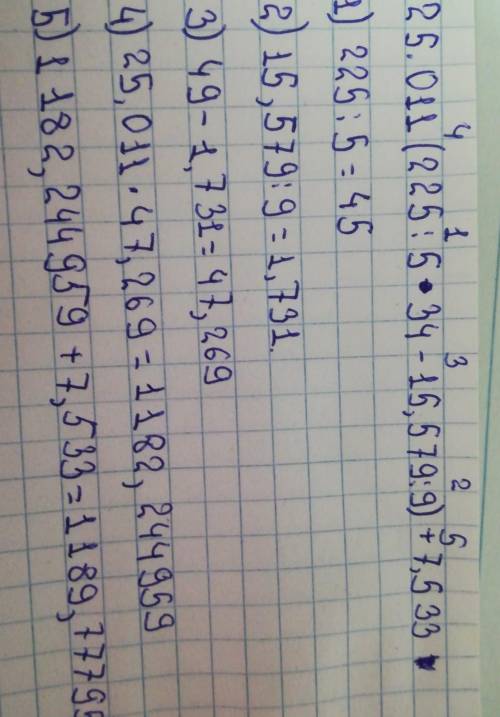 4 1 3 2 5
25.011(225:5•34-15,579:9)+7,533
1) 225:5=45
2) 15,579:9=1,731.
3) 49-1,731=47,269
4) 25,011·47,269=1182,244959
5) 1182,244959+7,533=1189,7779